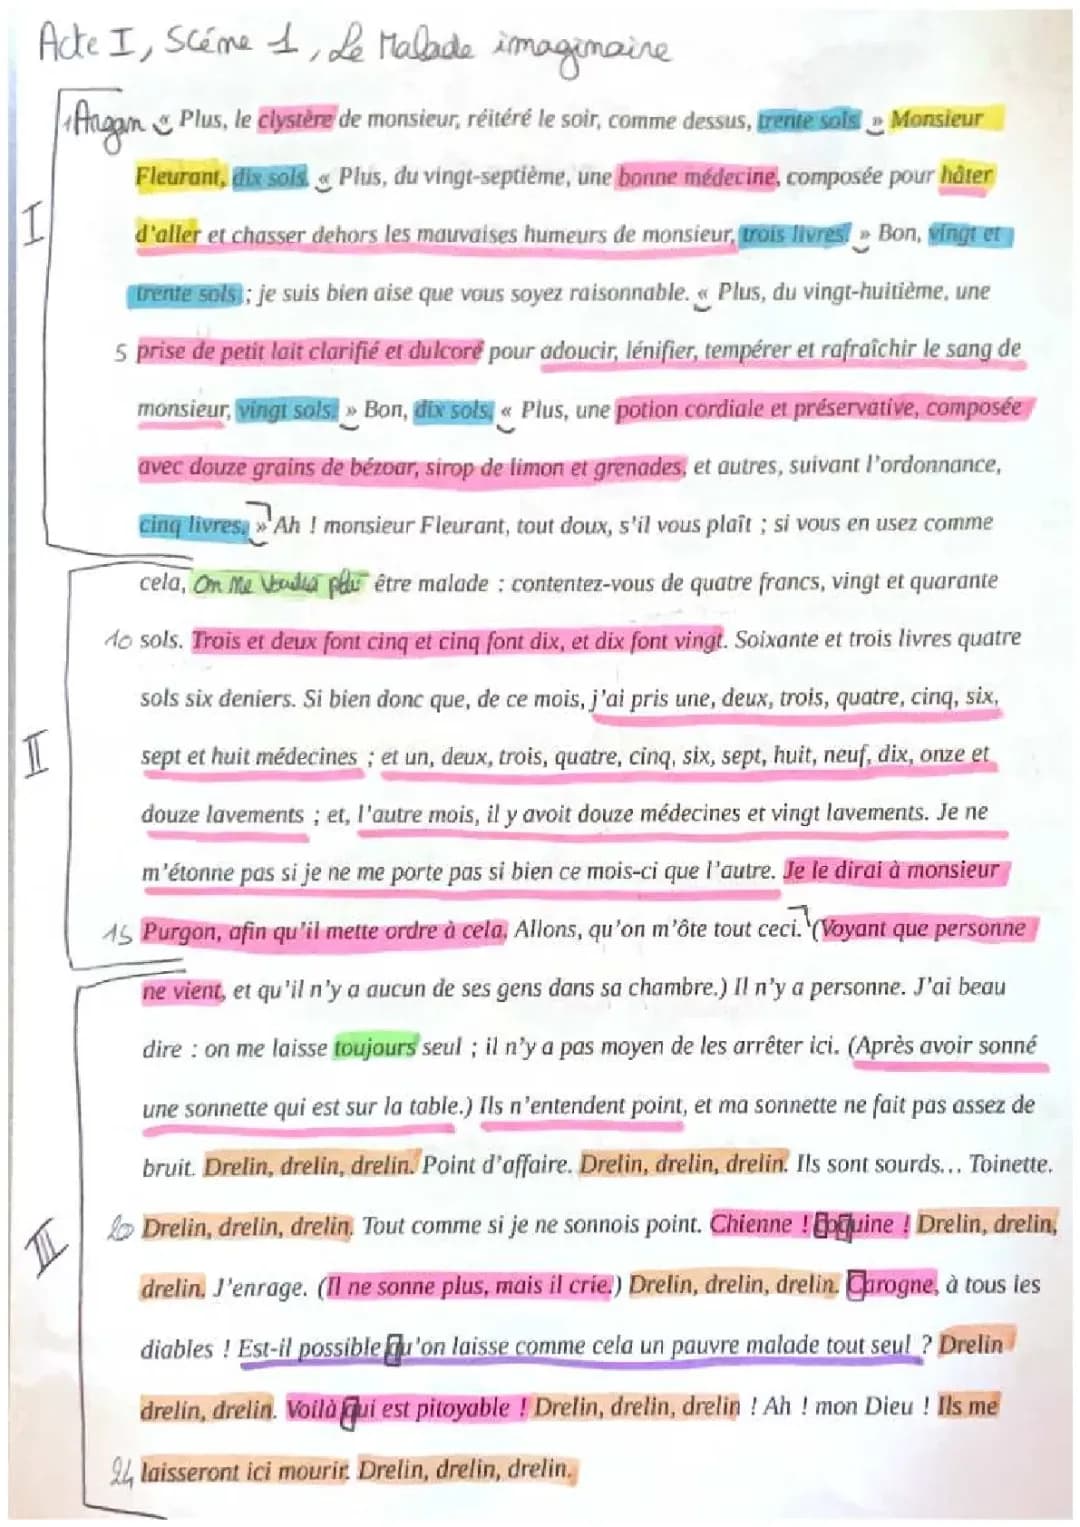 Acte I, Scéne 1, Le Malade imaginaire
1 Argan « Plus, le clystère de monsieur, réitéré le soir, comme dessus, trente sols. » Monsieur
Fleurant, dix sols. « Plus, du vingt-septième, une bonne médecine, composée pour hâter
I
d'aller et chasser dehors les mauvaises humeurs de monsieur, trois livres. » Bon, vingt et
trente sols ; je suis bien aise que vous soyez raisonnable. « Plus, du vingt-huitième, une
5 prise de petit lait clarifié et dulcoré pour adoucir, lénifier, tempérer et rafraîchir le sang de
monsieur, vingt sols. » Bon, dix sols. « Plus, une potion cordiale et préservative, composée
avec douze grains de bézoar, sirop de limon et grenades, et autres, suivant l'ordonnance,
cinq livres. » Ah ! monsieur Fleurant, tout doux, s'il vous plaît ; si vous en usez comme
cela, On me voudra plus être malade : contentez-vous de quatre francs, vingt et quarante
10 sols. Trois et deux font cinq et cinq font dix, et dix font vingt. Soixante et trois livres quatre
sols six deniers. Si bien donc que, de ce mois, j'ai pris une, deux, trois, quatre, cinq, six,
II
sept et huit médecines ; et un, deux, trois, quatre, cinq, six, sept, huit, neuf, dix, onze et
douze lavements ; et, l'autre mois, il y avoit douze médecines et vingt lavements. Je ne
m'étonne pas si je ne me porte pas si bien ce mois-ci que l'autre. Je le dirai à monsieur
15 Purgon, afin qu'il mette ordre à cela. Allons, qu'on m'ôte tout ceci. (Voyant que personne
ne vient, et qu'il n'y a aucun de ses gens dans sa chambre.) Il n'y a personne. J'ai beau
dire : on me laisse toujours seul ; il n'y a pas moyen de les arrêter ici. (Après avoir sonné
une sonnette qui est sur la table.) Ils n'entendent point, et ma sonnette ne fait pas assez de
bruit. Drelin, drelin, drelin. Point d'affaire. Drelin, drelin, drelin. Ils sont sourds... Toinette.
III
20 Drelin, drelin, drelin. Tout comme si je ne sonnois point. Chienne ! Coquine ! Drelin, drelin,
drelin. J'enrage. (Il ne sonne plus, mais il crie.) Drelin, drelin, drelin. Carogne, à tous les
diables ! Est-il possible qu'on laisse comme cela un pauvre malade tout seul ? Drelin
drelin, drelin. Voilà qui est pitoyable ! Drelin, drelin, drelin ! Ah ! mon Dieu ! Ils me
24 laisseront ici mourir. Drelin, drelin, drelin.